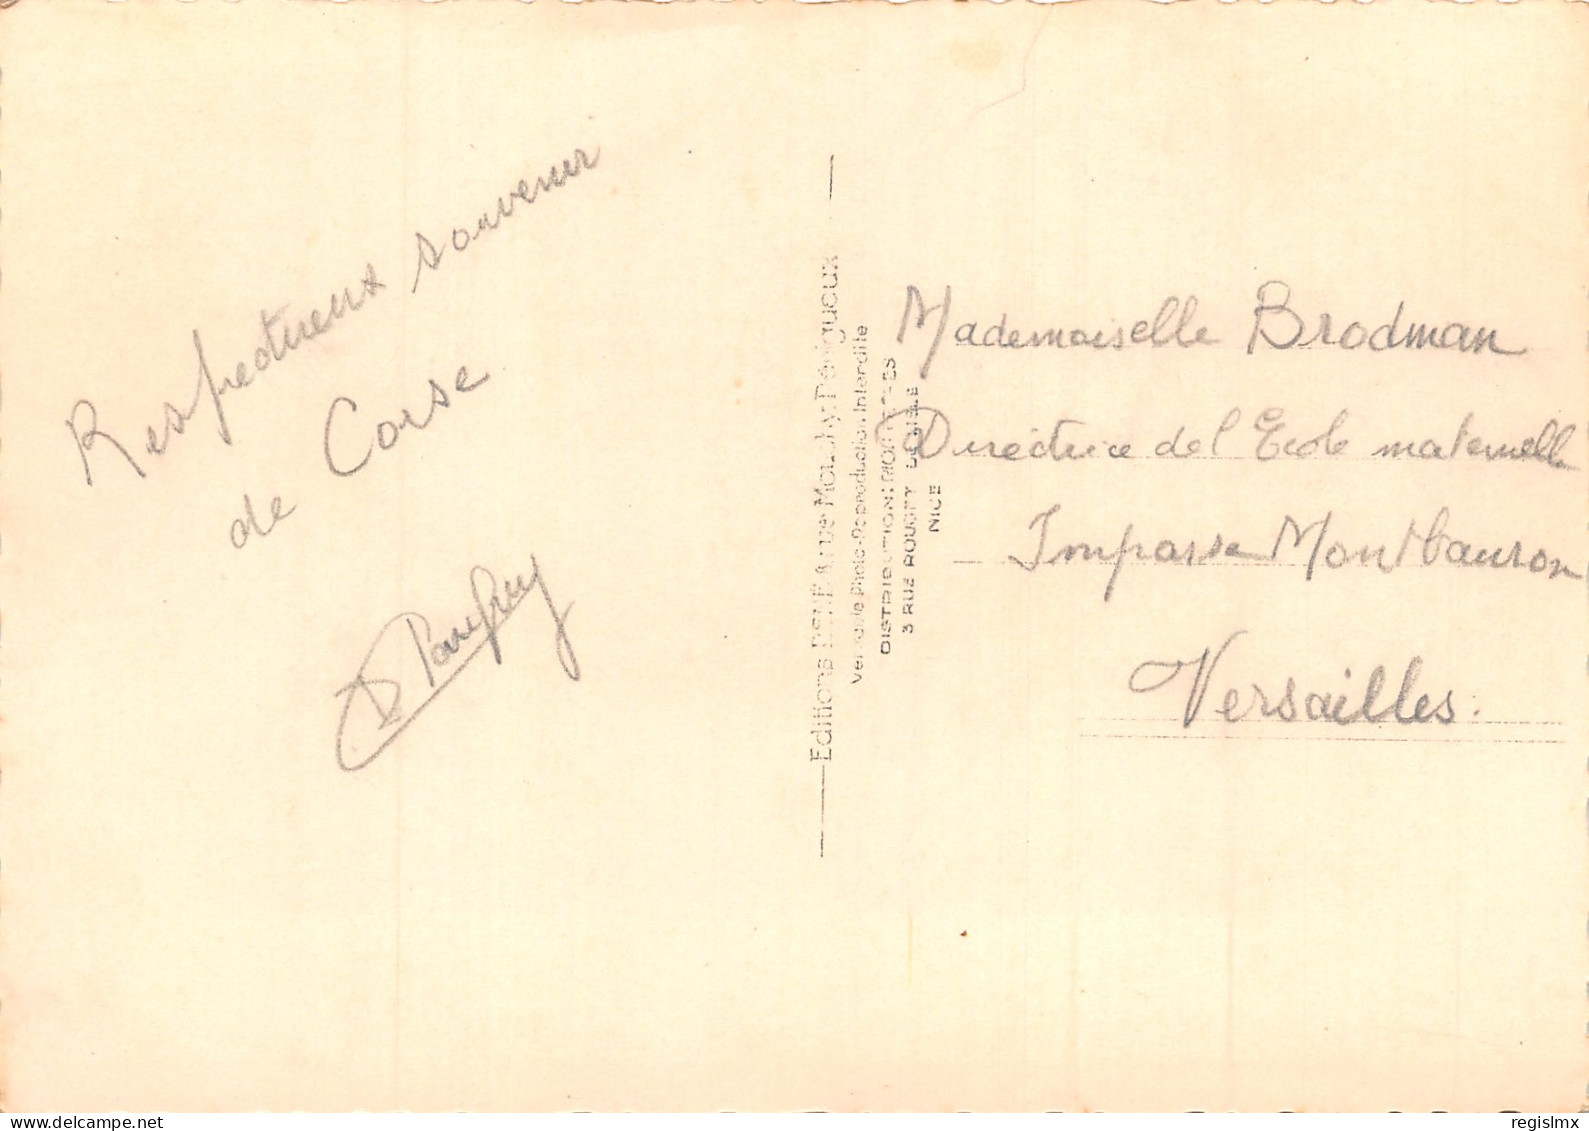 Respectueux souvenir
de Corse
Editions RENÉ rue Mouchy, Périgueux
Véritable Photo-Reproduction Interdite
DISTRIBUTION:
3 RUE ROUGET DE L'ISLE
NICE
Mademoiselle Brodman
Directrice de l'Ecole maternelle
Impasse Montbauron
Versailles.
delcampe.net
regislmx